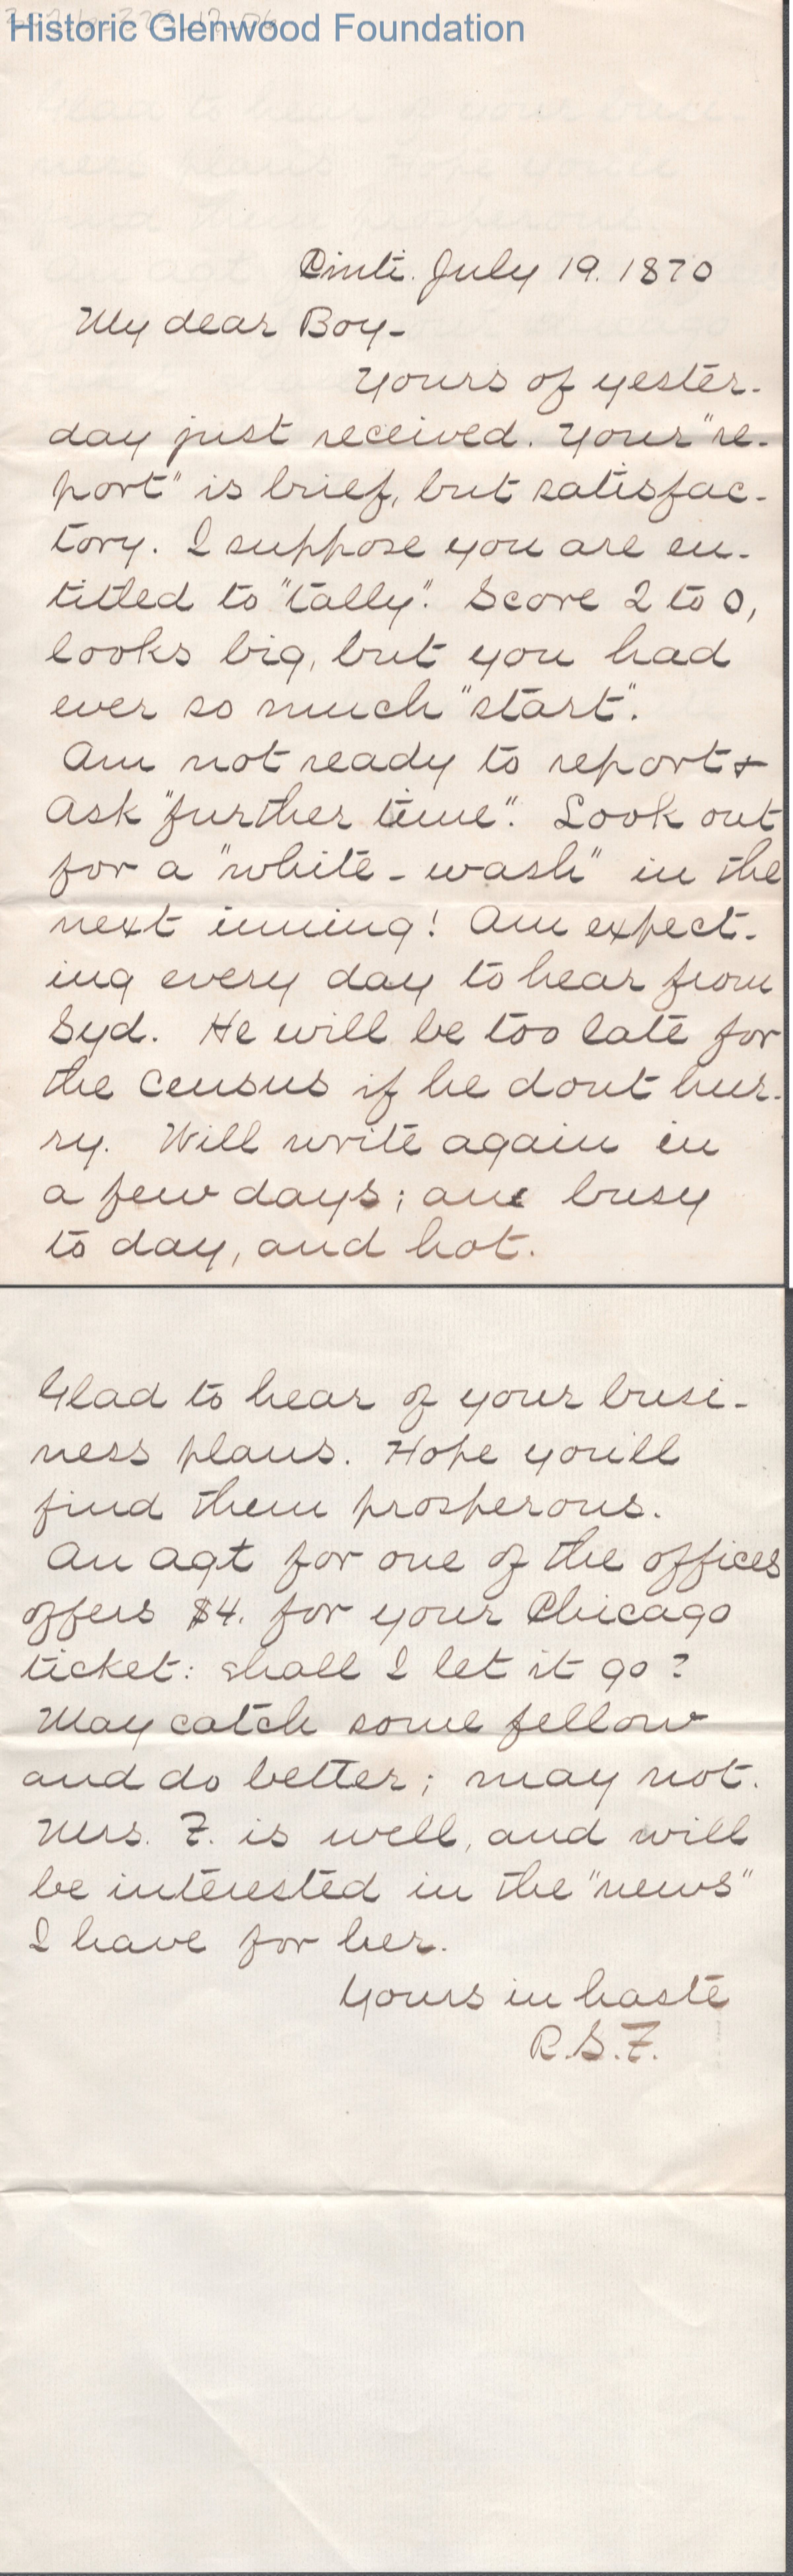 Historic Glenwood Foundation
Cinti. July 19. 1870
My dear Boy-
Yours of yester-
day just received. Your "re-
port" is brief, but satisfac-
tory. I suppose you are en-
titled to "tally". Score 2 to 0,
looks big, but you had
ever so much "start".
Am not ready to report &
ask "further time". Look out
for a "white-wash" in the
next inning! Am expect-
ing every day to hear from
Syd. He will be too late for
the census if he dont hur-
ry. Will write again in
a few days; am busy
to day, and hot.
Glad to hear of your busi-
ness plans. Hope you'll
find them prosperous.
An agt for one of the offices
offers $4. for your Chicago
ticket: shall I let it go?
May catch some fellow
and do better; may not.
Mrs. F. is well, and will
be interested in the "news"
I have for her.
Yours in haste
R.S.F.